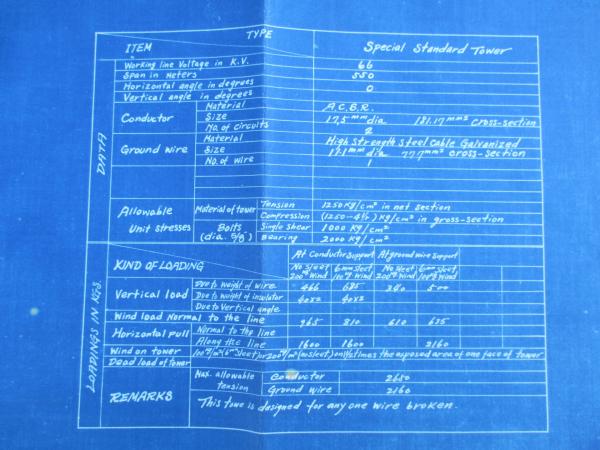 TYPE
ITEM Special Standard Tower
DATA
Working line Voltage in K.V. 66
Span in Meters 550
Horizontal angle in degrees 0
Vertical angle in degrees
Conductor Material A.C.B.R.
Size 17.5 mm dia 181.17 mm² cross-section
No. of circuits 2
Ground wire Material High Strength Steel Cable Galvanized
Size mm dia mm² cross-section
No. of wire 1
Allowable Unit stresses Material of tower Tension 1250 Kg/cm² in net section
Compression Kg/cm² in gross-section
Bolts (dia. 5/8) Single shear 1000 Kg/cm²
Bearing 2000 Kg/cm²
LOADINGS IN KGS.
KIND OF LOADING At Conductor Support At ground wire Support
No Sleet 200 Wind 6mm Sleet 100 Wind No Sleet 200 Wind 6mm Sleet 100 Wind
Vertical load Due to weight of wire 466 500
Due to weight of insulator 40x2 40x2
Due to Vertical angle
Wind load Normal to the line 965 810 610 635
Horizontal pull Normal to the line
Along the line 1600 1600 2160
Wind on tower the exposed area of one face of tower
Dead load of tower
REMARKS Max. allowable tension Conductor 2650
Ground wire 2160
This towe is dasigned for any one wire broken.